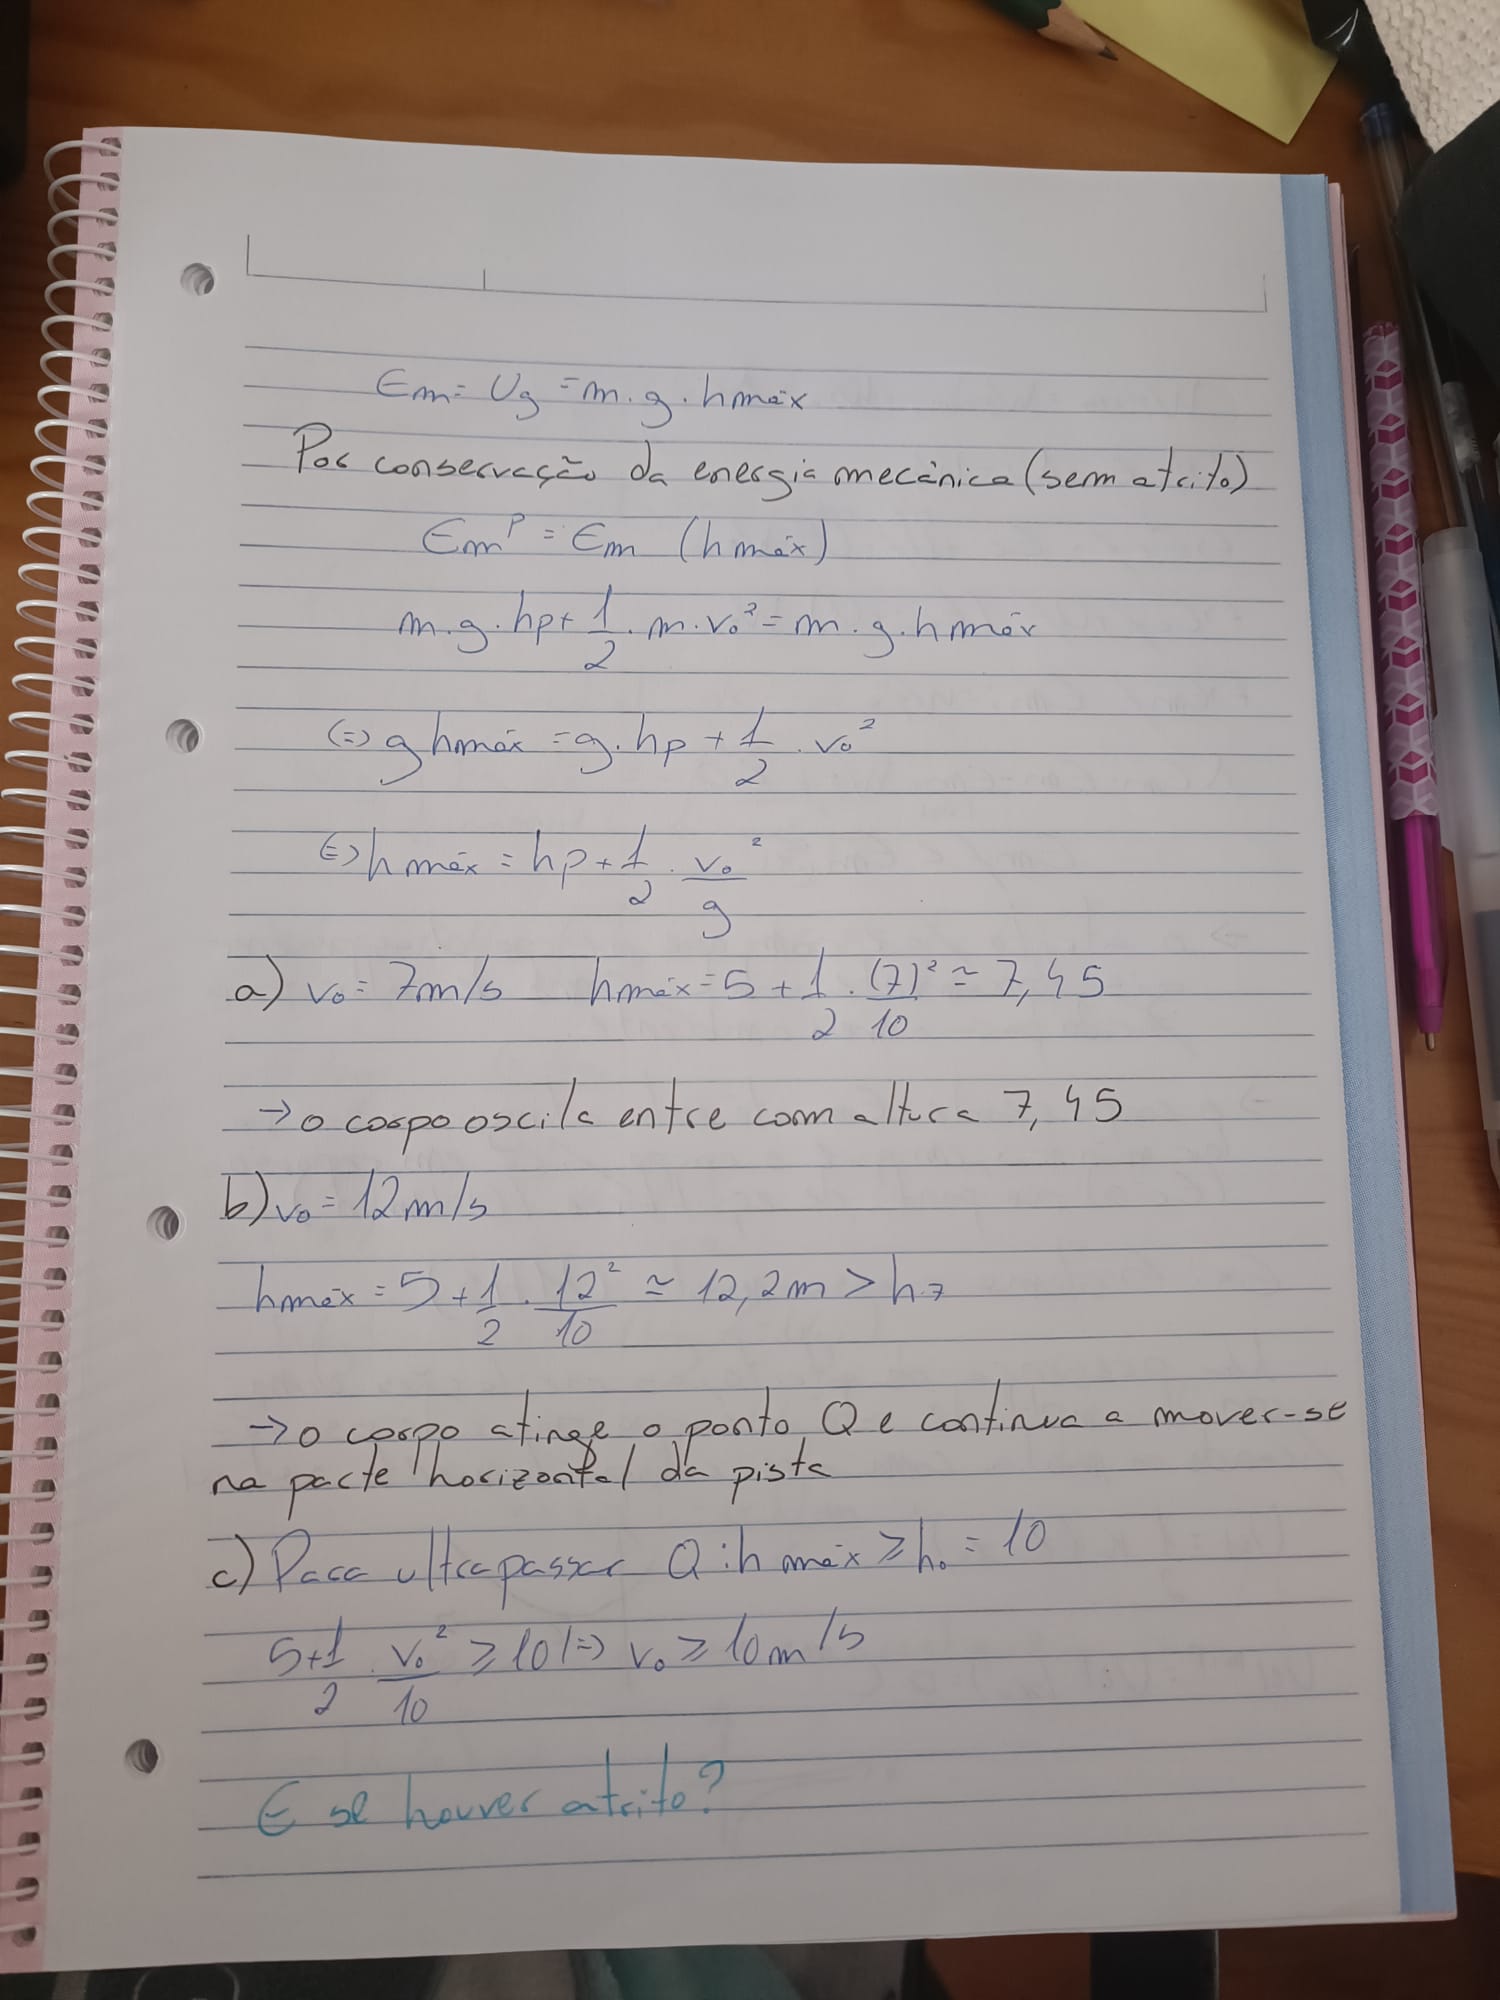 Em = Ug = m.g.hmáx
Por conservação da energia mecânica (sem atrito)
Em^P = Em (hmáx)
m.g.hp + 1/2 . m.v₀² = m.g.hmáx
(=) g hmáx = g.hp + 1/2 . v₀²
(=) hmáx = hp + 1/2 . v₀²/g
a) v₀ = 7m/s hmáx = 5 + 1/2 . (7)²/10 ≃ 7,45
→ o corpo oscila entre com altura 7,45
b) v₀ = 12m/s
hmáx = 5 + 1/2 . 12²/10 ≃ 12,2m > h
→ o corpo atinge o ponto Q e continua a mover-se
na parte horizontal da pista
c) Para ultrapassar Q: hmáx ≥ h₀ = 10
5 + 1/2 . v₀²/10 ≥ 10 (=) v₀ ≥ 10m/s
E se houver atrito?